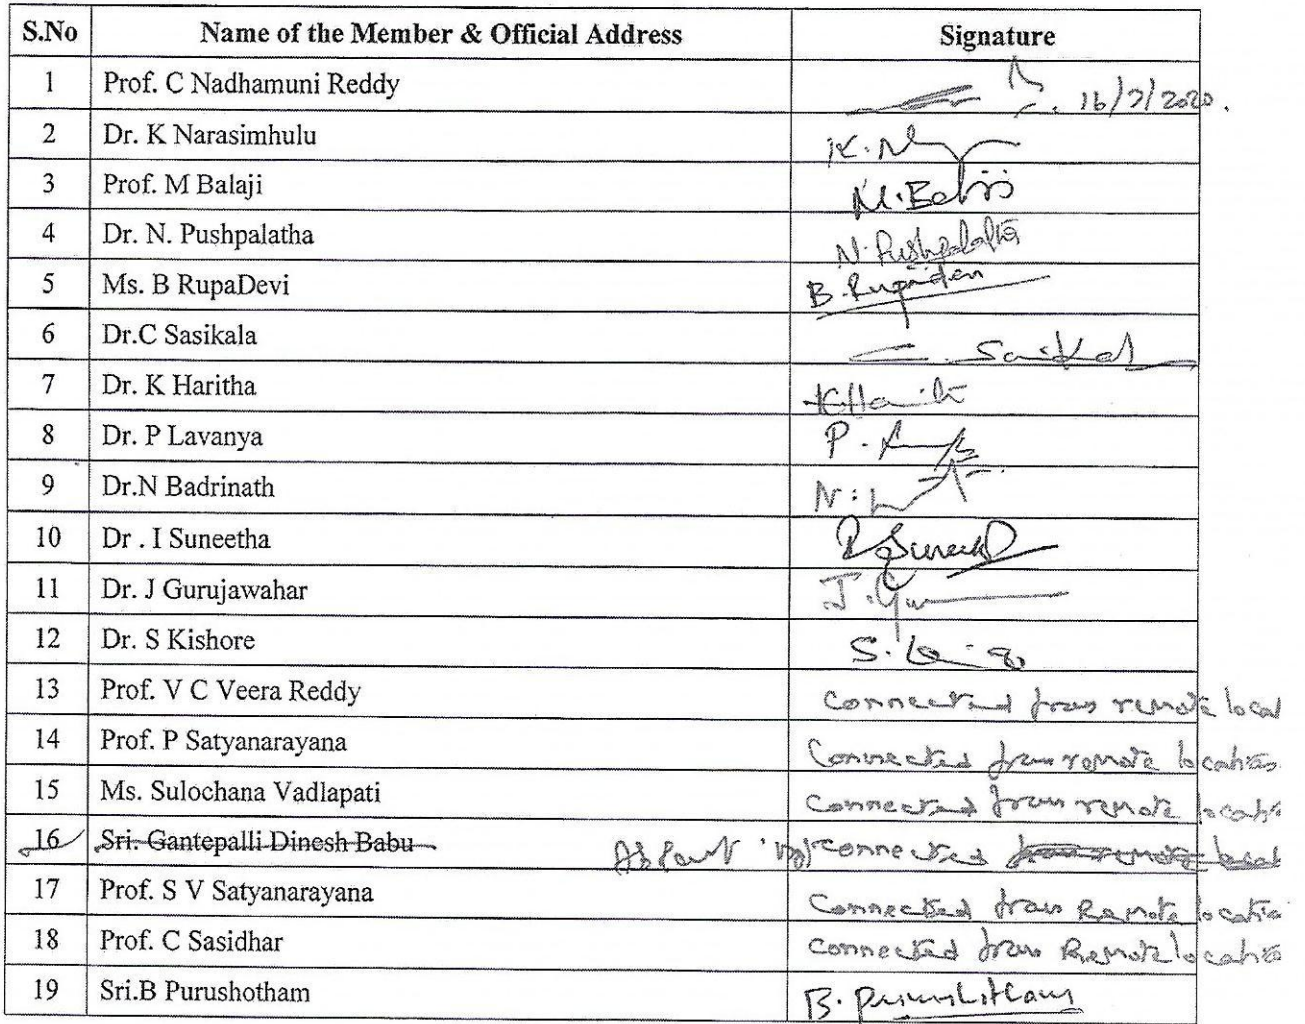 S.No Name of the Member & Official Address Signature
1 Prof. C Nadhamuni Reddy 16/7/2020.
2 Dr. K Narasimhulu K.
3 Prof. M Balaji M.Balaji
4 Dr. N. Pushpalatha N.Pushpalatha
5 Ms. B RupaDevi B.Rupadevi
6 Dr.C Sasikala C. Sasikal
7 Dr. K Haritha K Haritha
8 Dr. P Lavanya P.
9 Dr.N Badrinath N.
10 Dr . I Suneetha Suneetha
11 Dr. J Gurujawahar J.Gu
12 Dr. S Kishore S.
13 Prof. V C Veera Reddy Connected from remote locat
14 Prof. P Satyanarayana Connected from remote location
15 Ms. Sulochana Vadlapati Connected from remote locati
16 Sri. Gantepalli Dinesh Babu Absent Not connected from remote locat
17 Prof. S V Satyanarayana Connected from Remote locatio
18 Prof. C Sasidhar Connected from Remote location
19 Sri.B Purushotham B. Purushotham